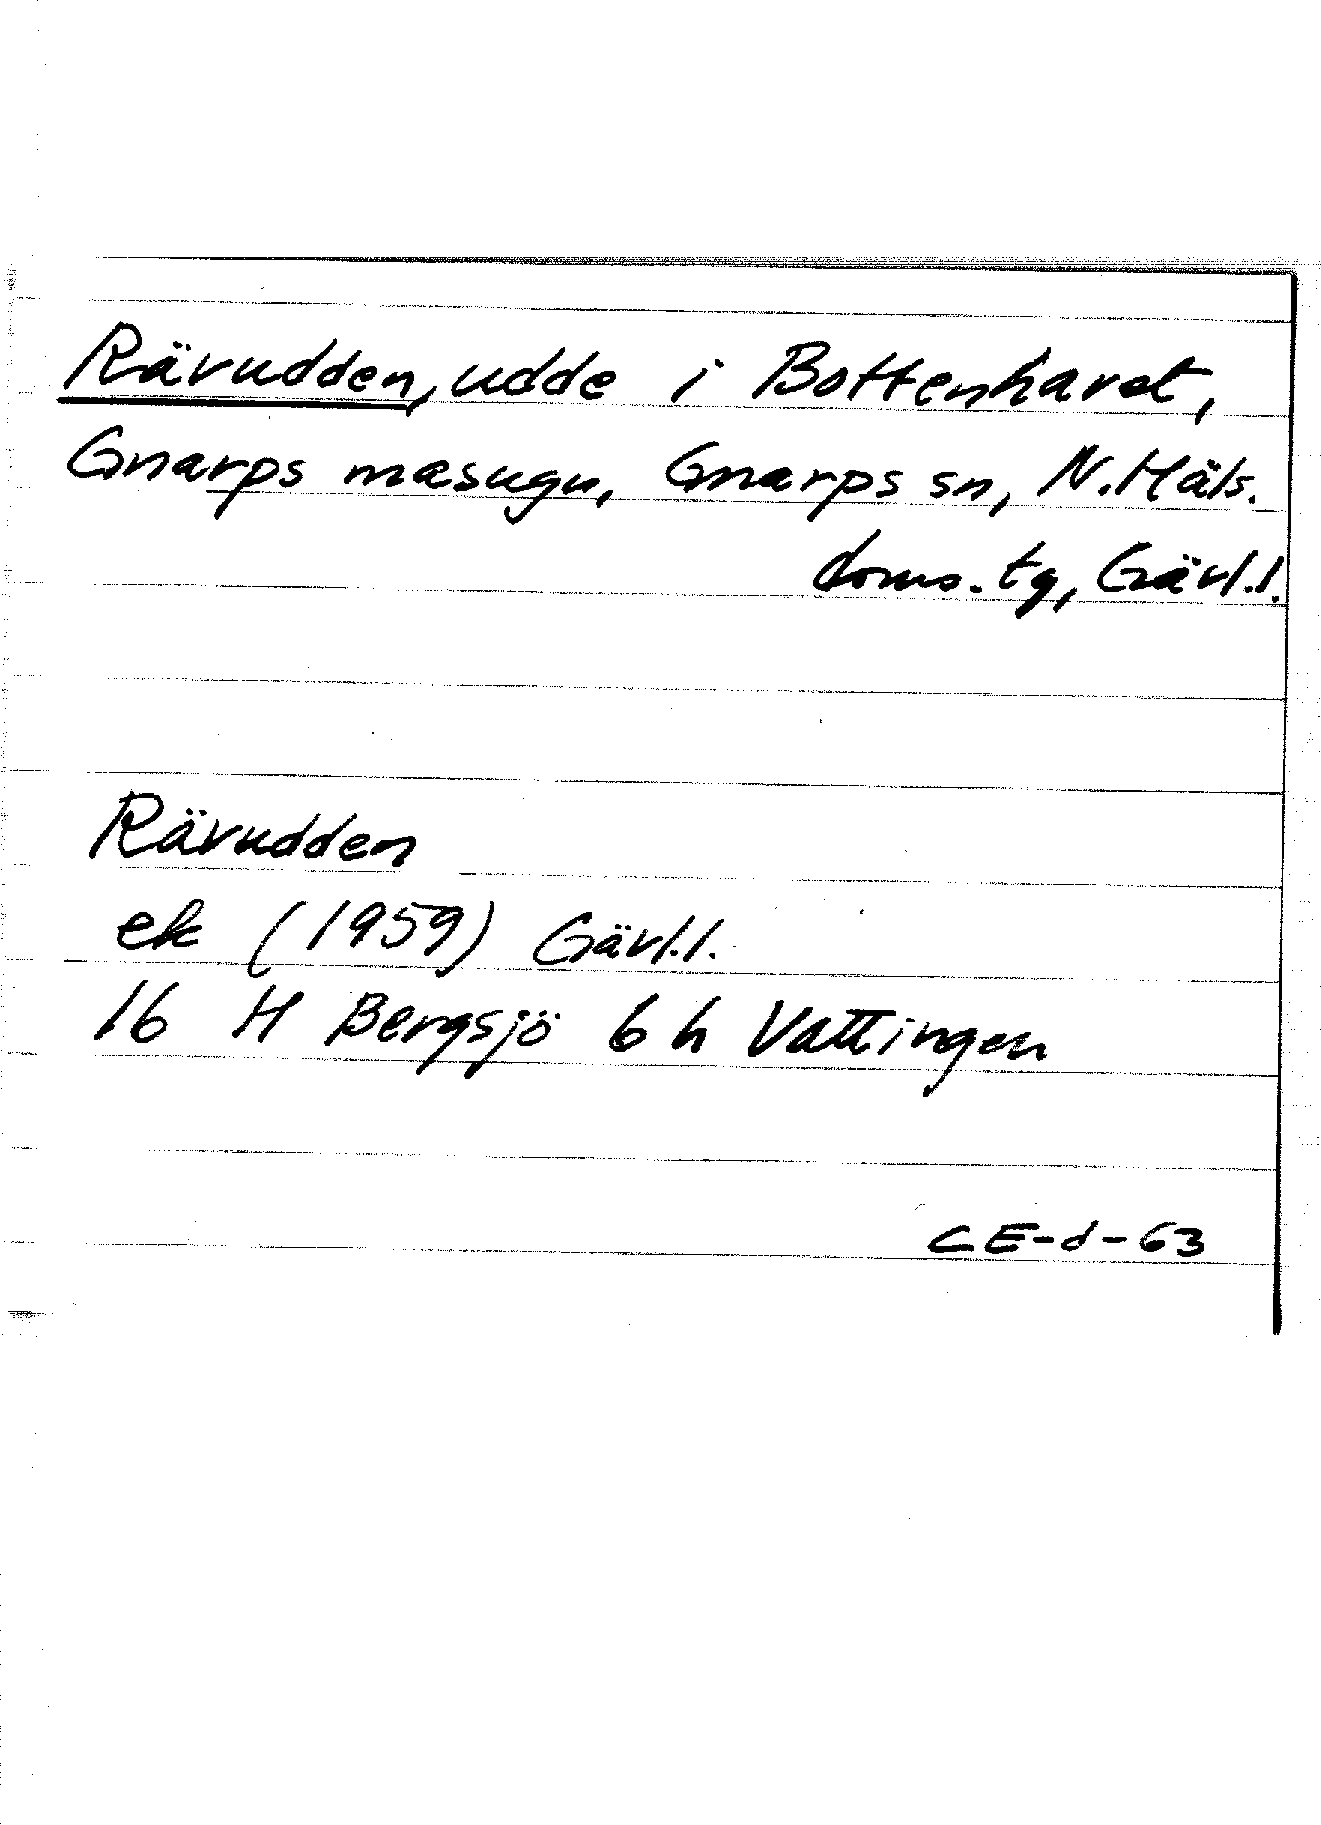 Rävudden, udde i Bottenhavet,
Gnarps masugn, Gnarps sn, N. Häls.
doms. tg, Gävl. l.
Rävudden
ek (1959) Gävl. l.
16 H Bergsjö 6 h Vattingen
CE-d-63